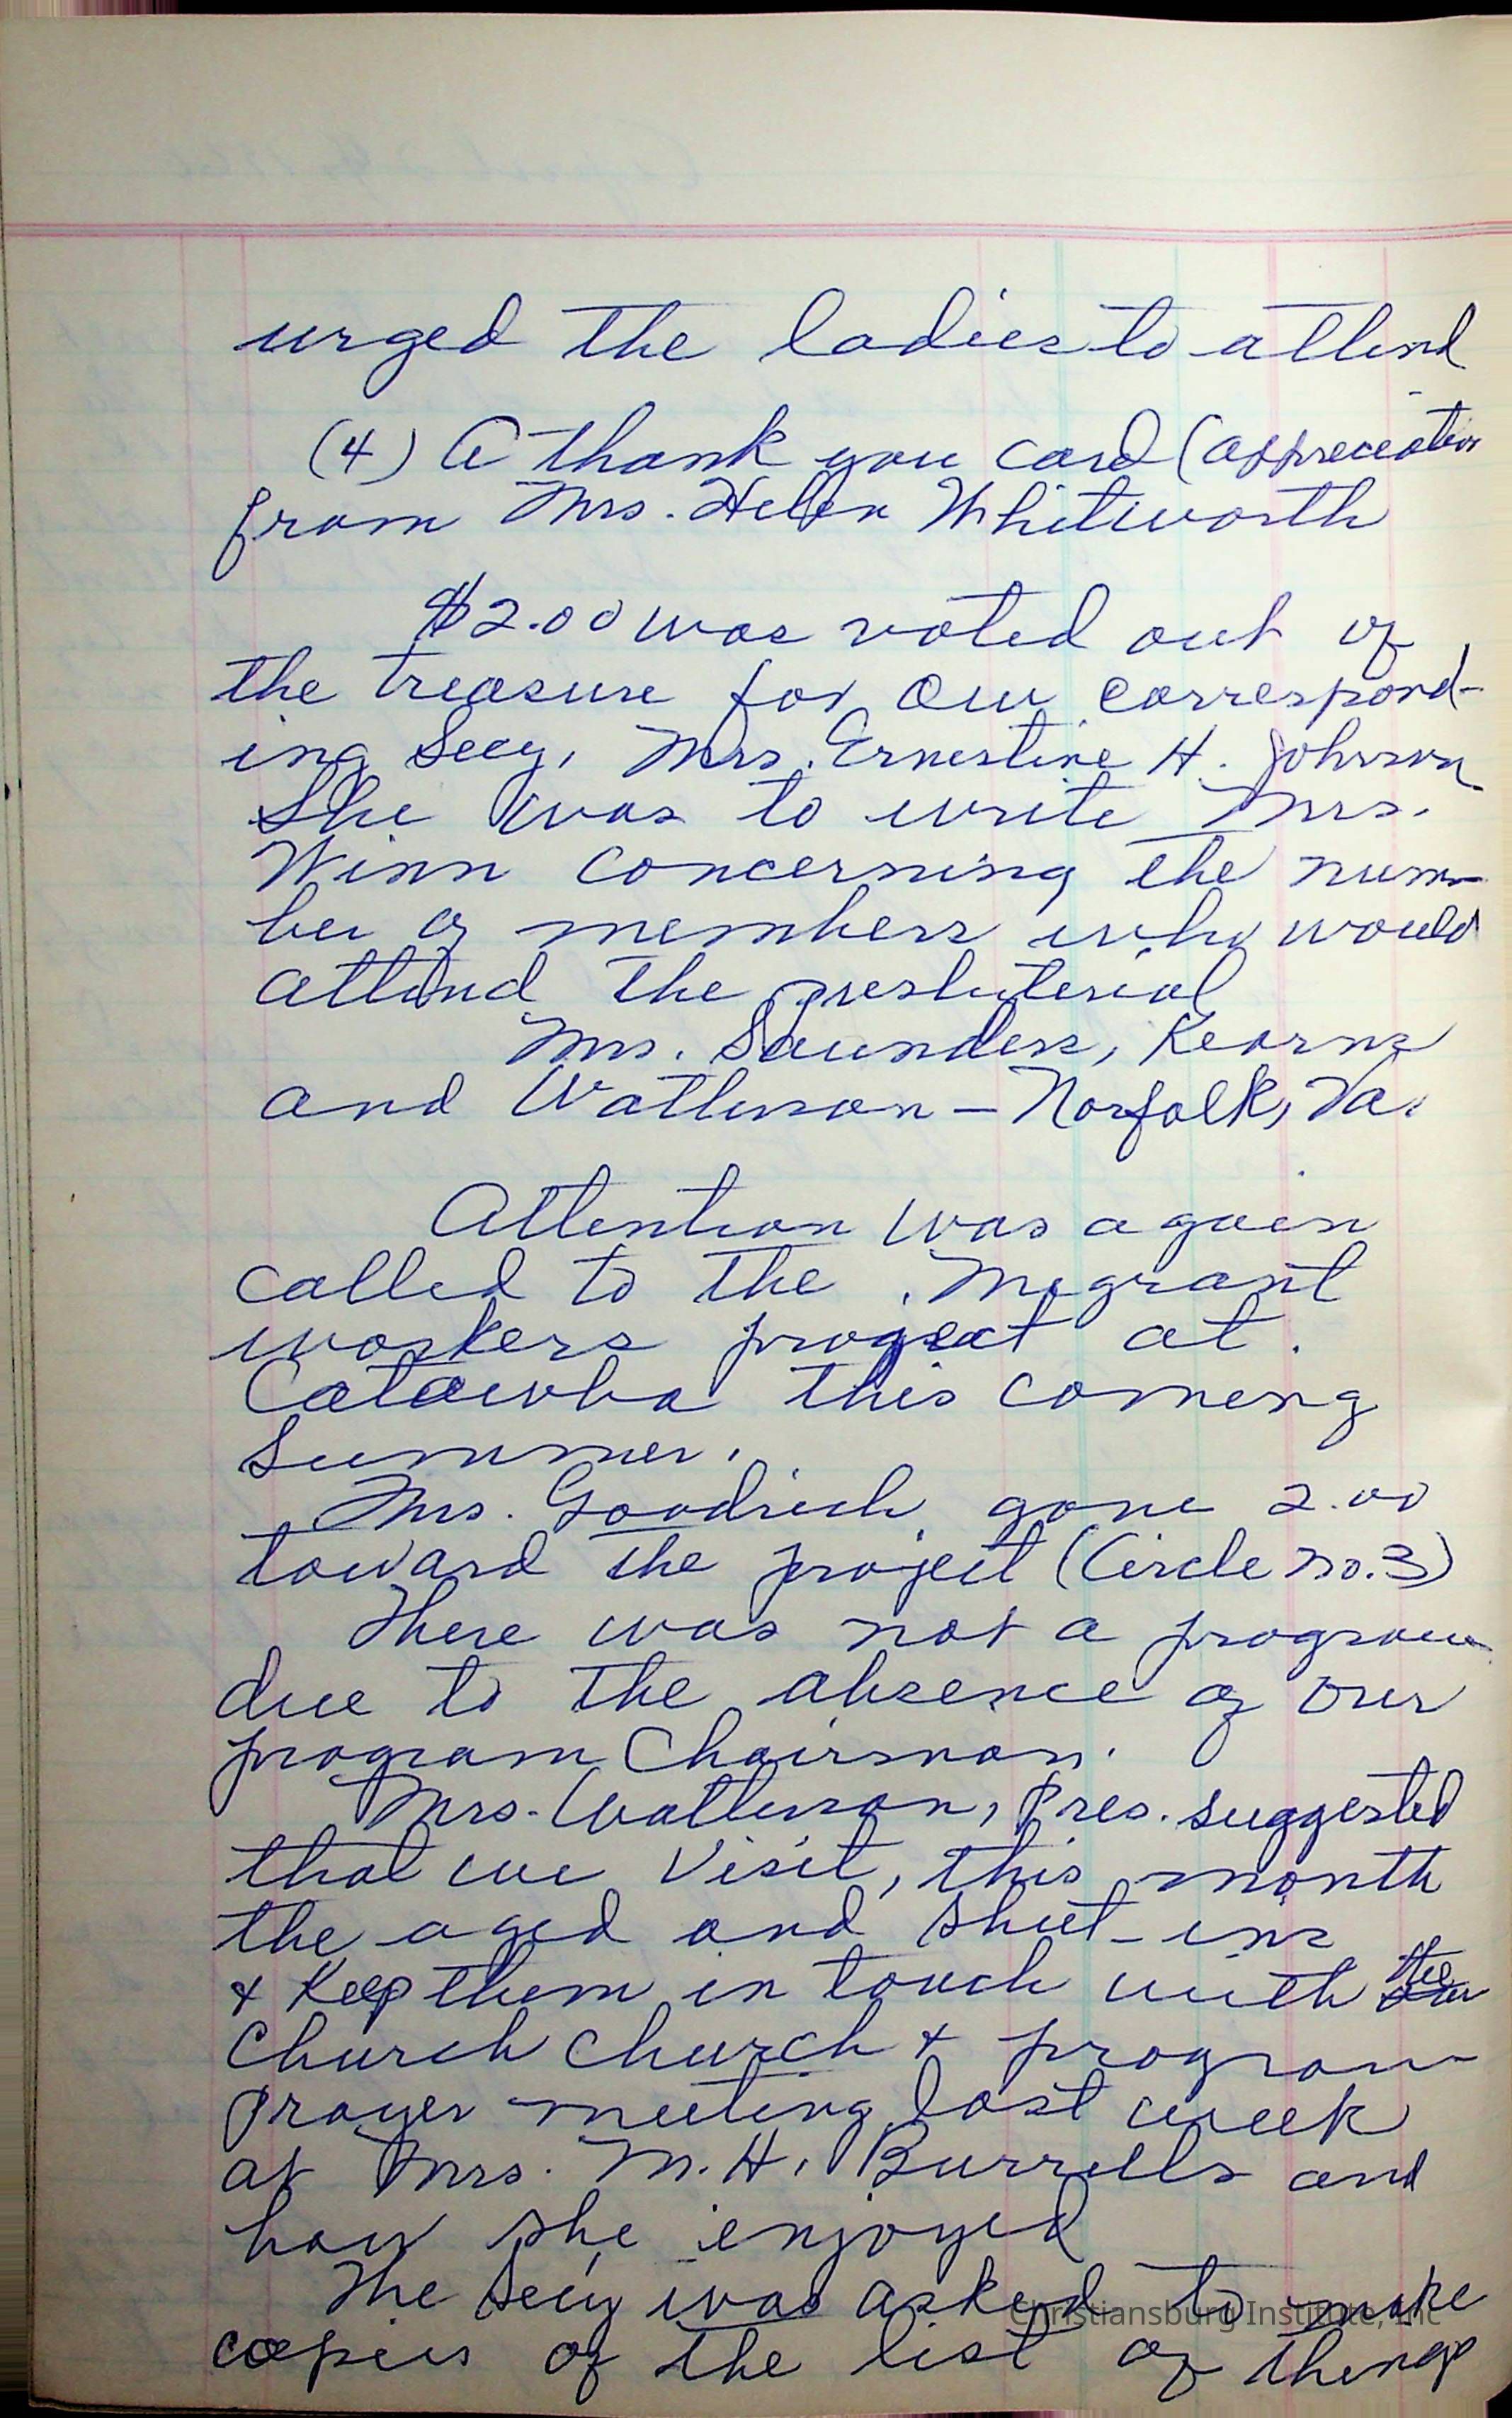 urged the ladies to attend
(4) A thank you card (appreciation
from Mrs. Helen Whitworth
$2.00 was voted out of
the treasure for our correspond-
ing Secy, Mrs. Ernestine H. Johnson
She was to write Mrs.
Winn concerning the num-
ber of members who would
attend the presbyterial
Mrs. Saunders, Kearns
and Watterson - Norfolk, Va.
Attention was again
called to the Migrant
workers at
Catawba this coming
summer.
Mrs. Goodrich gave 2.00
toward the project (Circle no. 3)
There was not a program
due to the absence of our
program Chairman.
Mrs. Watterson, Pres. suggested
that we visit, this month
the aged and shut-ins
& Keep them in touch with the
Church Church & program
Prayer meeting last week
at Mrs. M. H. Burrells and
how she enjoyed
The Secy was asked to make
copies of the list of things
Christiansburg Institute, Inc